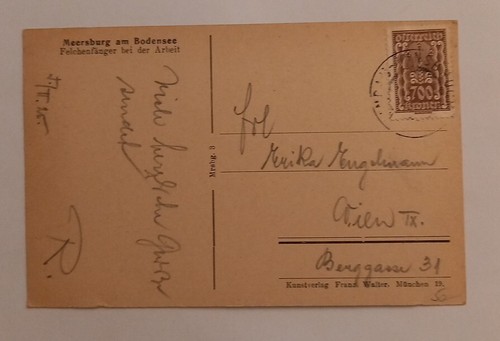 Meersburg am Bodensee
Felchenfänger bei der Arbeit
Viele herzliche Grüße
sendet
R.
Mrsbg. 3
österreich
700
kronen
Frl
Erika Engelmann
Wien IX.
Berggasse 31
Kunstverlag Franz Walter, München 19.